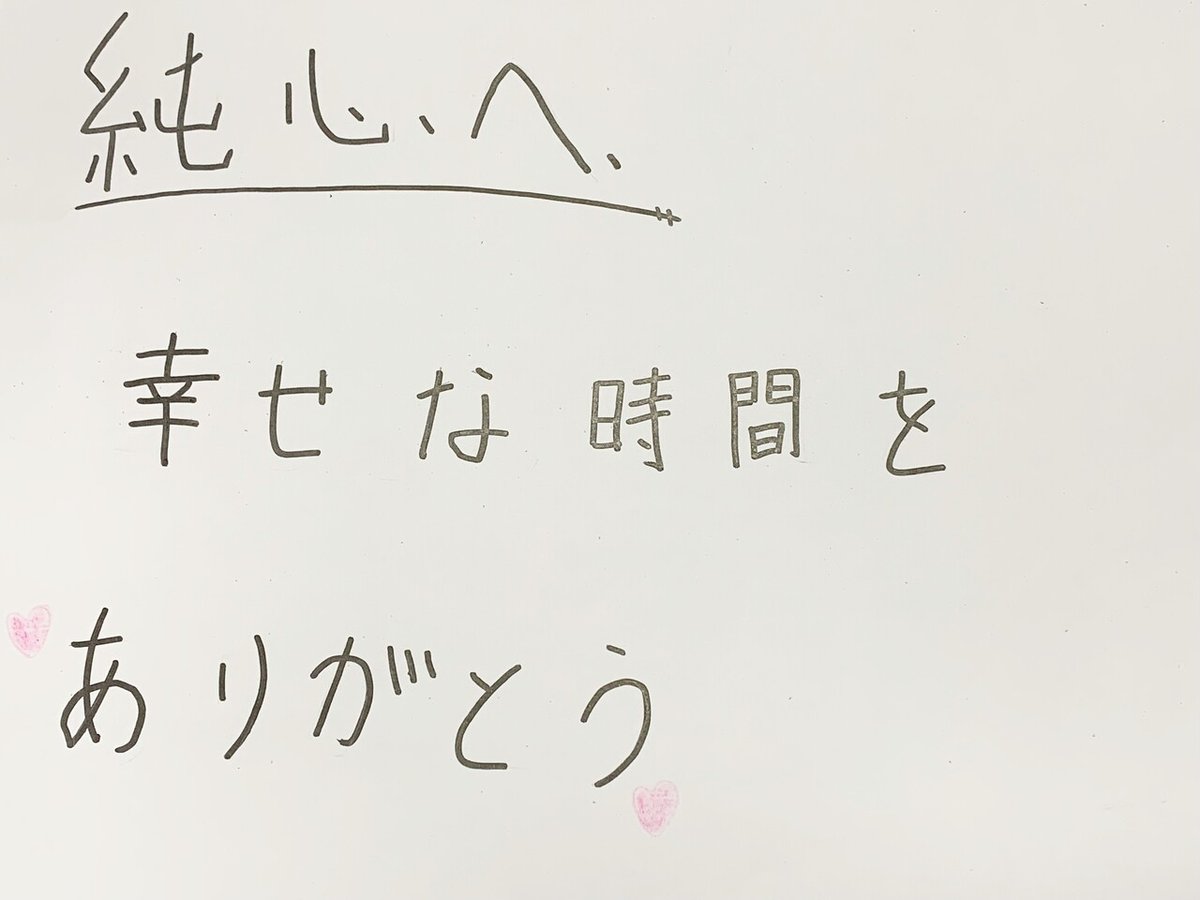 純心へ、
幸せな時間を
ありがとう